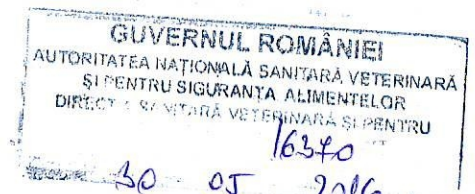 GUVERNUL ROMÂNIEI
AUTORITATEA NAȚIONALĂ SANITARĂ VETERINARĂ
ȘI PENTRU SIGURANȚA ALIMENTELOR
SANITARĂ VETERINARĂ ȘI PENTRU
16370
30 05 2016